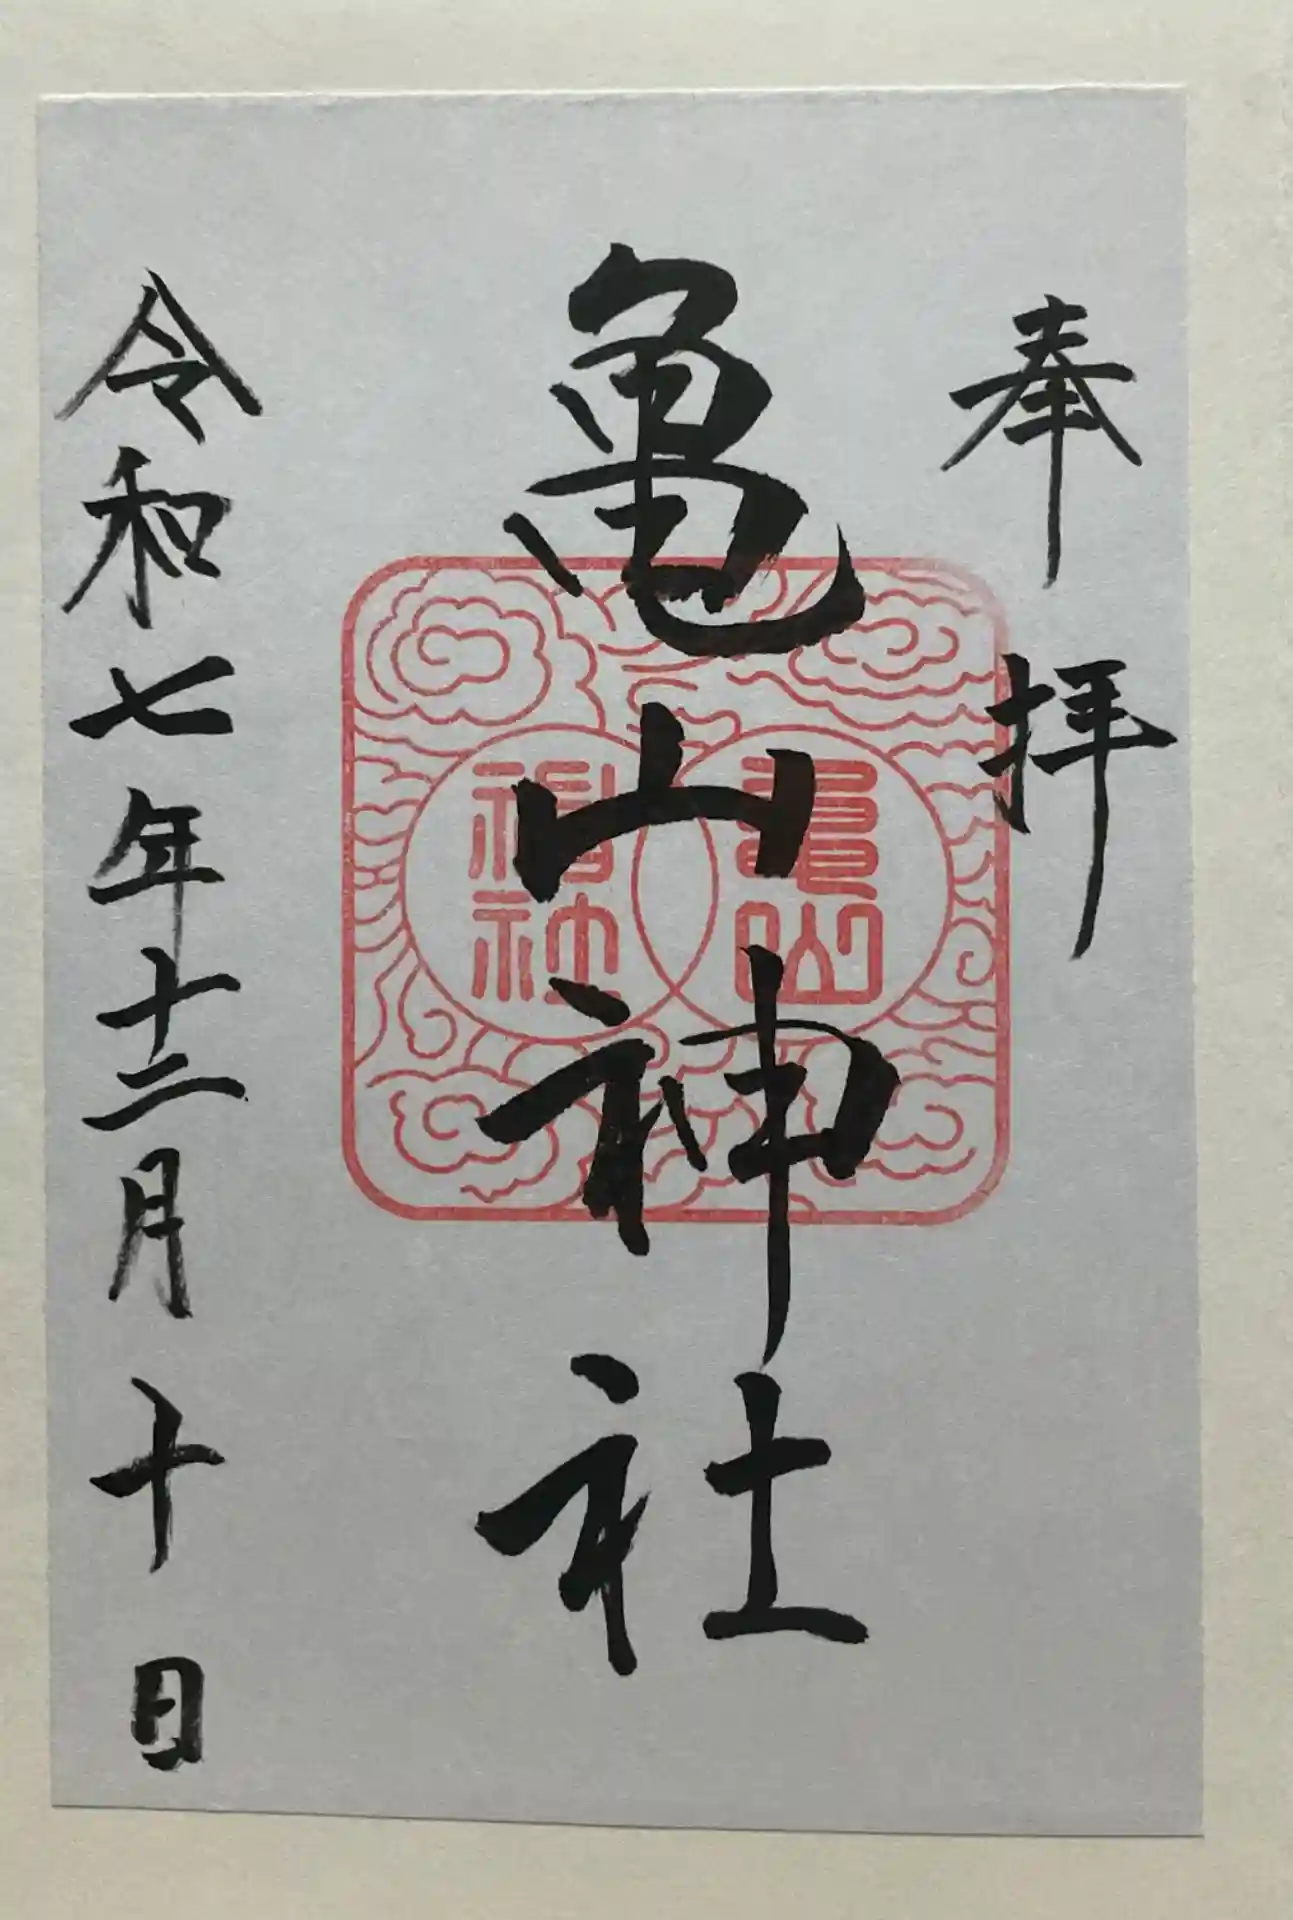 奉拝
亀山神社
亀山
神社
令和七年十二月十日